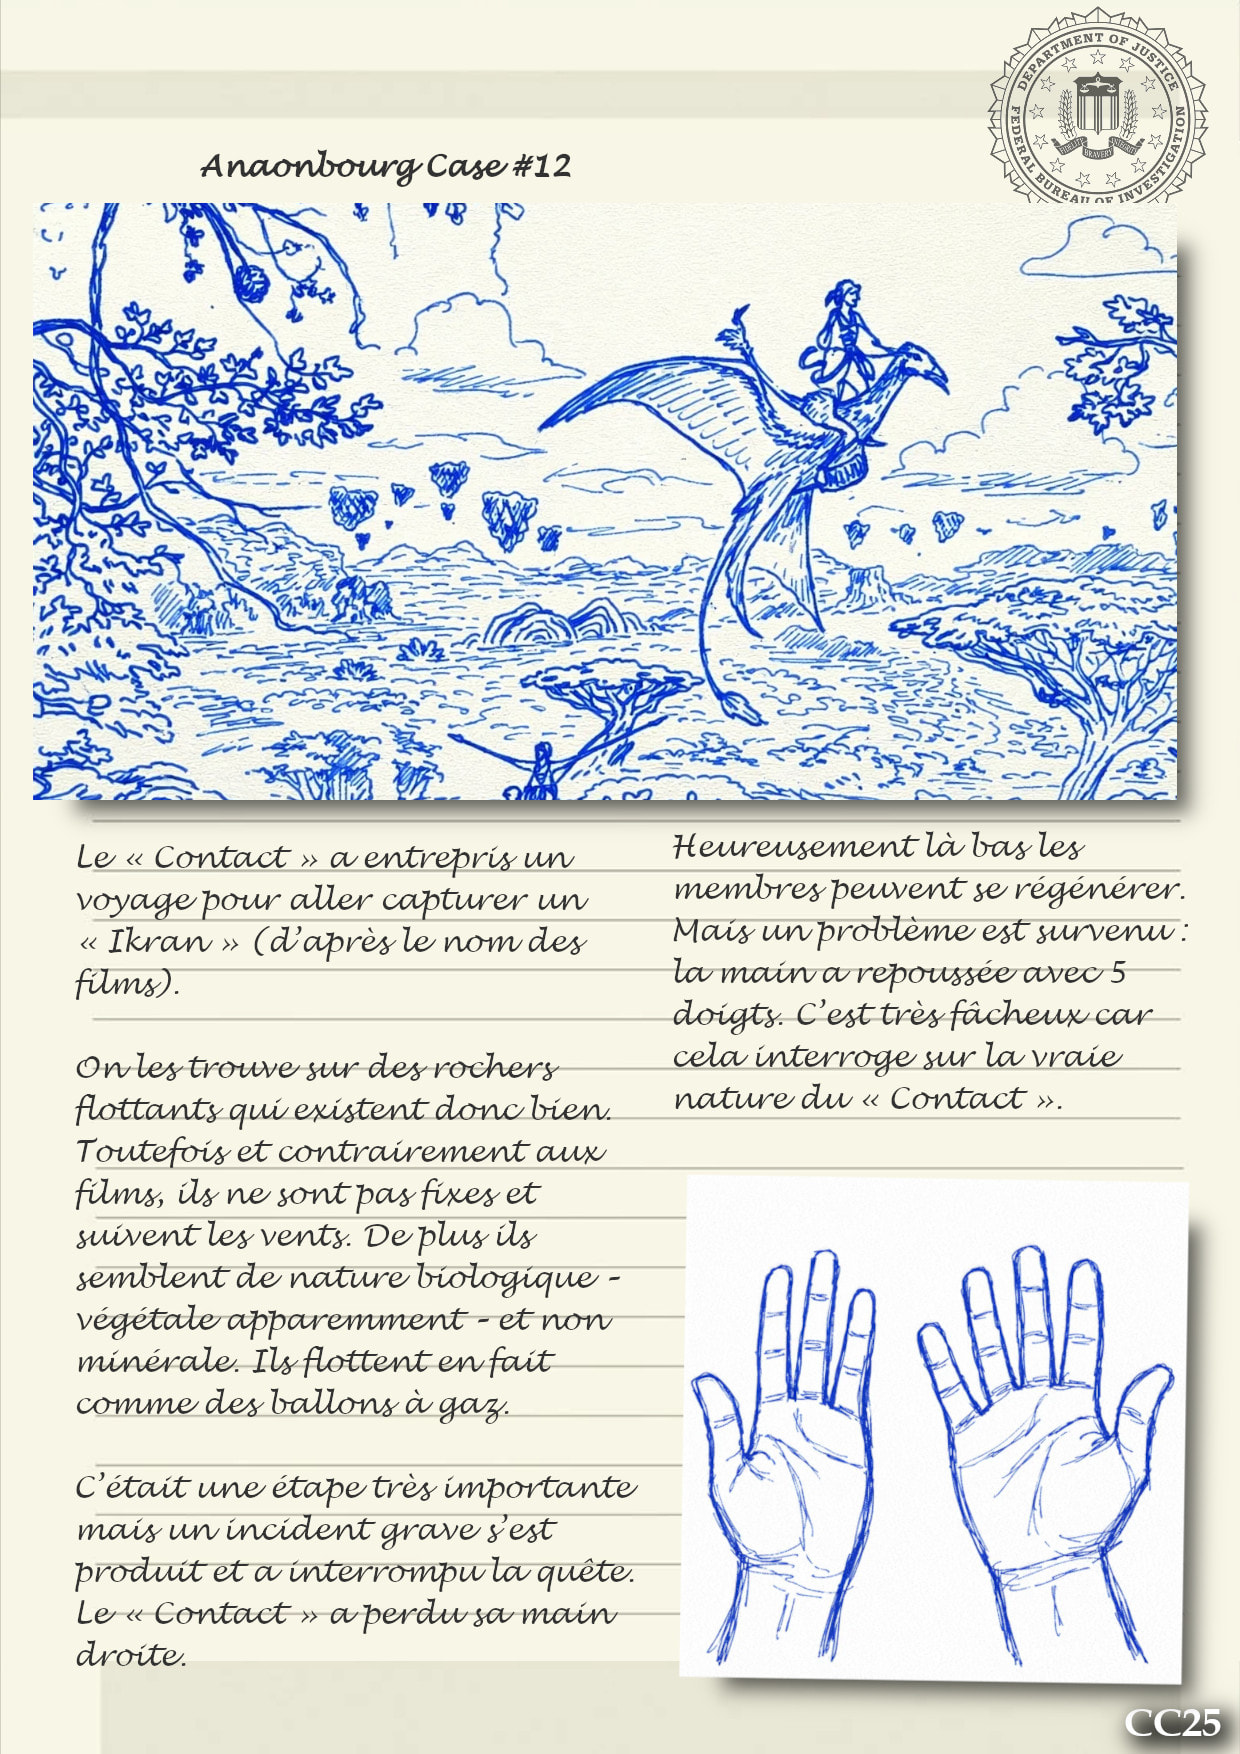 DEPARTMENT OF JUSTICE
FEDERAL BUREAU OF INVESTIGATION
FIDELITY BRAVERY INTEGRITY
Anaonbourg Case #12
Le « Contact » a entrepris un
voyage pour aller capturer un
« Ikran » (d’après le nom des
films).
On les trouve sur des rochers
flottants qui existent donc bien.
Toutefois et contrairement aux
films, ils ne sont pas fixes et
suivent les vents. De plus ils
semblent de nature biologique –
végétale apparemment – et non
minérale. Ils flottent en fait
comme des ballons à gaz.
C’était une étape très importante
mais un incident grave s’est
produit et a interrompu la quête.
Le « Contact » a perdu sa main
droite.
Heureusement là bas les
membres peuvent se régénérer.
Mais un problème est survenu :
la main a repoussée avec 5
doigts. C’est très fâcheux car
cela interroge sur la vraie
nature du « Contact ».
CC25